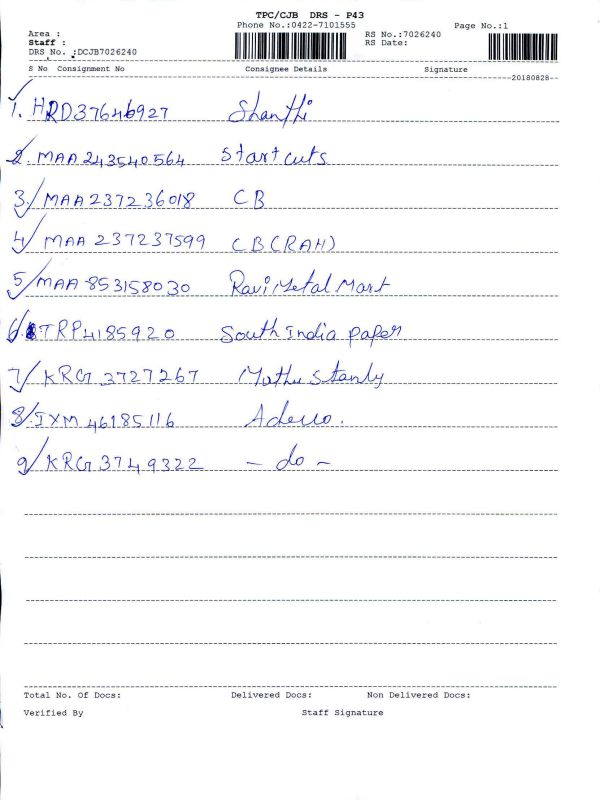 TPC/CJB DRS - P43
Phone No.:0422-7101555 Page No.:1
Area : RS No.:7026240
Staff : RS Date:
DRS No. :DCJB7026240
S No Consignment No Consignee Details Signature
20180828
1. HRD37646927 Shanthi
2. MAA 243540564 Start cuts
3. MAA 237236018 CB
4. MAA 237237599 CB (RAH)
5. MAA 853158030 Ravi Metal Mart
6. TRP4185920 South India paper
7. KRG 3727267 Muthu Stanly
8. IXM 46185116
9. KRG 3749322 - do -
Total No. Of Docs: Delivered Docs: Non Delivered Docs:
Verified By Staff Signature